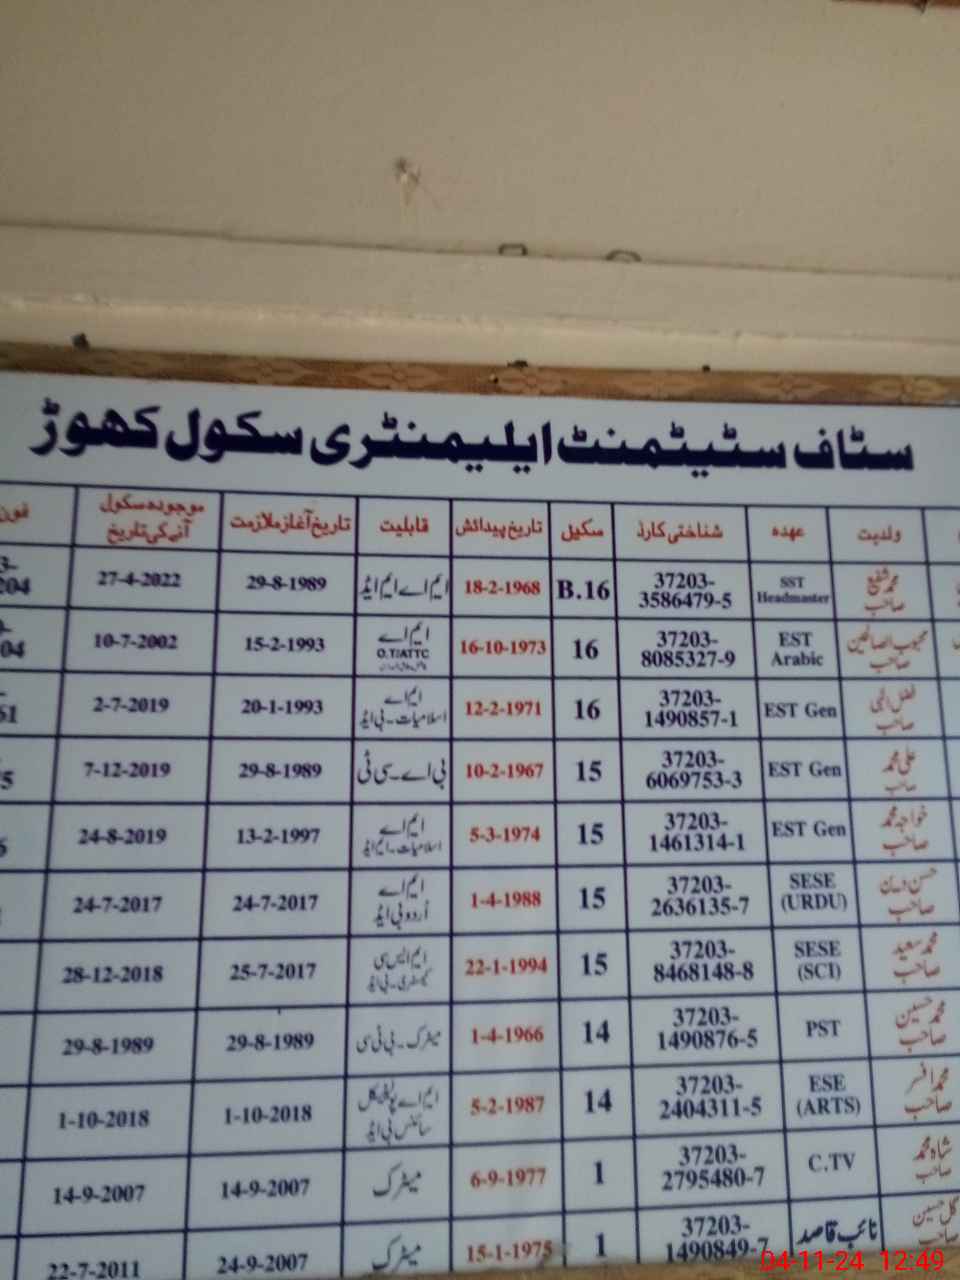 سٹاف سٹیٹمنٹ ایلیمنٹری سکول کھوڑ
ولدیت عہدہ شناختی کارڈ سکیل تاریخ پیدائش قابلیت تاریخ آغاز ملازمت موجودہ سکول آنے کی تاریخ فون
محمد شفیع صاحب SST Headmaster 37203-3586479-5 B.16 18-2-1968 ایم اے ایم ایڈ 29-8-1989 27-4-2022
محبوب الصالحین صاحب EST Arabic 37203-8085327-9 16 16-10-1973 ایم اے O.T/ATTC 15-2-1993 10-7-2002
فضل الٰہی صاحب EST Gen 37203-1490857-1 16 12-2-1971 ایم اے اسلامیات۔بی ایڈ 20-1-1993 2-7-2019
علی محمد صاحب EST Gen 37203-6069753-3 15 10-2-1967 بی اے۔سی ٹی 29-8-1989 7-12-2019
خواجہ محمد صاحب EST Gen 37203-1461314-1 15 5-3-1974 ایم اے اسلامیات۔ایم ایڈ 13-2-1997 24-8-2019
حسن دین صاحب SESE (URDU) 37203-2636135-7 15 1-4-1988 ایم اے اُردو بی ایڈ 24-7-2017 24-7-2017
محمد سعید صاحب SESE (SCI) 37203-8468148-8 15 22-1-1994 ایم ایس سی کیمسٹری۔بی ایڈ 25-7-2017 28-12-2018
محمد حسین صاحب PST 37203-1490876-5 14 1-4-1966 میٹرک۔پی ٹی سی 29-8-1989 29-8-1989
محمد افسر صاحب ESE (ARTS) 37203-2404311-5 14 5-2-1987 ایم اے پولیٹیکل سائنس بی ایڈ 1-10-2018 1-10-2018
شاہ محمد صاحب C.TV 37203-2795480-7 1 6-9-1977 میٹرک 14-9-2007 14-9-2007
گل حسین صاحب نائب قاصد 37203-1490849-7 1 15-1-1975 میٹرک 24-9-2007 22-7-2011
04-11-24 12:49